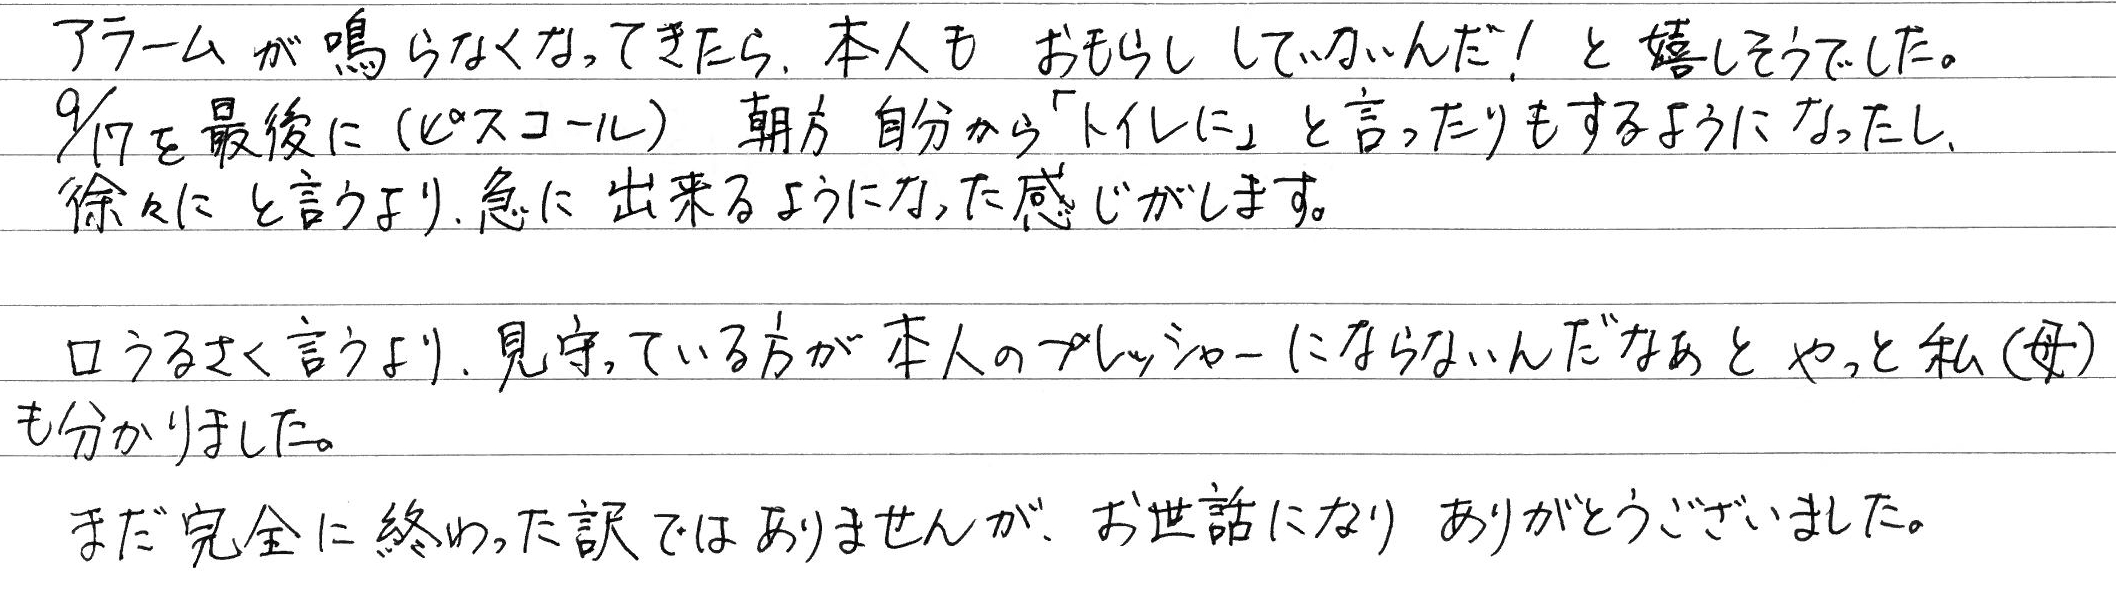 アラームが鳴らなくなってきたら、本人も おもらし していないんだ！ と嬉しそうでした。
9/17を最後に（ピスコール） 朝方 自分から「トイレに」と言ったりもするようになったし、
徐々にと言うより、急に出来るようになった感じがします。
口うるさく言うより、見守っている方が本人のプレッシャーにならないんだなあと やっと私（母）
も分かりました。
まだ完全に終わった訳ではありませんが、お世話になり ありがとうございました。